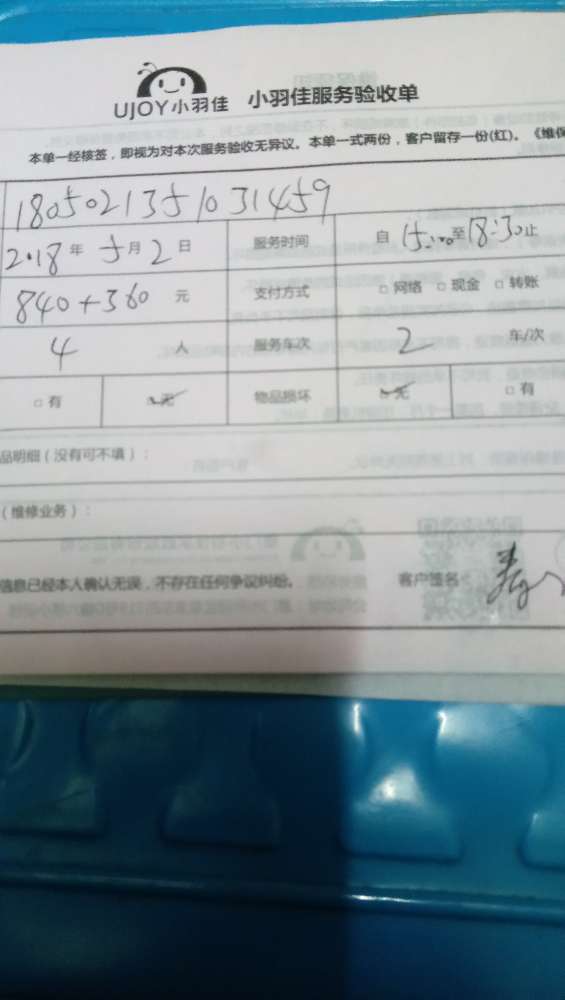 UJOY小羽佳 小羽佳服务验收单
本单一经核签，即视为对本次服务验收无异议。本单一式两份，客户留存一份(红)。《维保
18050213551031459
2018年5月2日 服务时间 自15:00至18:30止
840+360元 支付方式 □网络 □现金 □转账
4人 服务车次 2车/次
□有 ☑无 物品损坏 ☑无 □有
品明细（没有可不填）：
（维修业务）：
信息已经本人确认无误，不存在任何争议纠纷。 客户签名